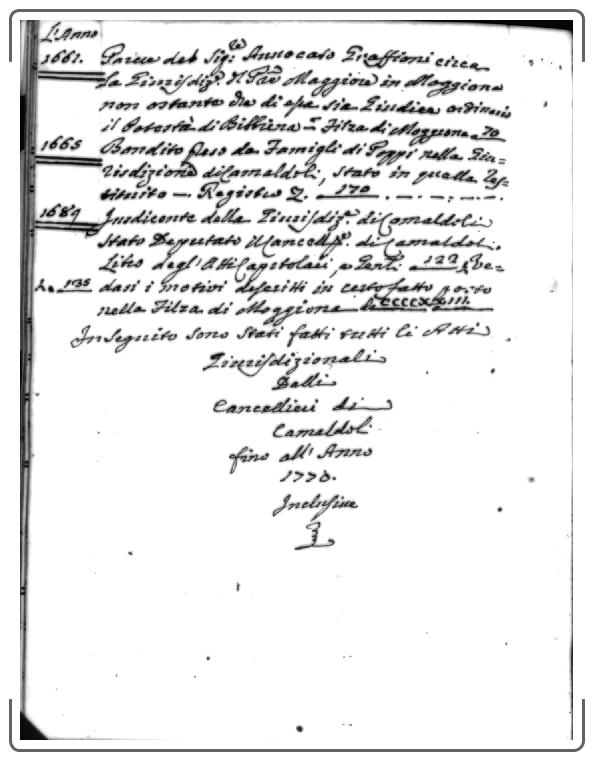 L'Anno
1661. Parere del Sig:re Annocaso Graffioni circa
la Giurisdiz.e Maggiore in Moggiona
non ostante che di essa sia Giudice ordinario
il Potestà di Bibbiena = Filza di Moggiona a 70
1665 Bandito preso da Famigli di Poppi nella Giu=
risdizione di Camaldoli, stato in quella Res=
tituito —. Registro Z. 170
1689 Jusdicente della Giurisdiz.e di Camaldoli
stato Deputato il Cancell.re di Camaldoli.
Libro degl'Atti Capitolari, a 122 e Ve=
1135 dasi i motivi descritti in certo fatto posto
nella Filza di Moggiona
In seguito sono stati fatti tutti li Atti
Giurisdizionali
Dalli
Cancellieri di
Camaldoli
fino all'Anno
1770.
Inclusive